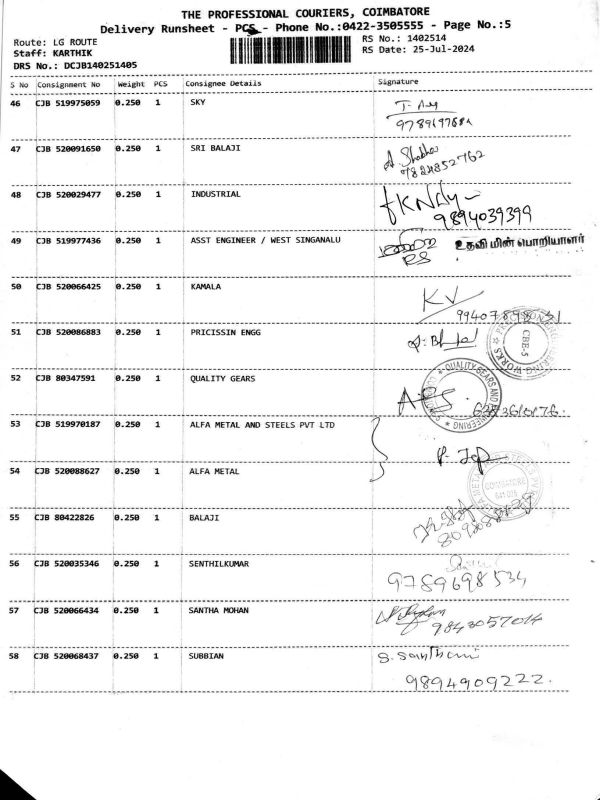 THE PROFESSIONAL COURIERS, COIMBATORE
Delivery Runsheet - PCS - Phone No.:0422-3505555 - Page No.:5
Route: LG ROUTE
RS No.: 1402514
Staff: KARTHIK
RS Date: 25-Jul-2024
DRS No.: DCJB140251405
S No Consignment No Weight PCS Consignee Details Signature
46 CJB 519975059 0.250 1 SKY
47 CJB 520091650 0.250 1 SRI BALAJI
9824852762
48 CJB 520029477 0.250 1 INDUSTRIAL
9894039399
49 CJB 519977436 0.250 1 ASST ENGINEER / WEST SINGANALU உதவி மின் பொறியாளர்
50 CJB 520066425 0.250 1 KAMALA KV
51 CJB 520086883 0.250 1 PRICISSIN ENGG
CBE-5
52 CJB 80347591 0.250 1 QUALITY GEARS
QUALITY GEARS AND ENGINEERING
53 CJB 519970187 0.250 1 ALFA METAL AND STEELS PVT LTD
54 CJB 520088627 0.250 1 ALFA METAL
COIMBATORE
55 CJB 80422826 0.250 1 BALAJI
56 CJB 520035346 0.250 1 SENTHILKUMAR
9789698534
57 CJB 520066434 0.250 1 SANTHA MOHAN
9843057014
58 CJB 520068437 0.250 1 SUBBIAN
9894909222.